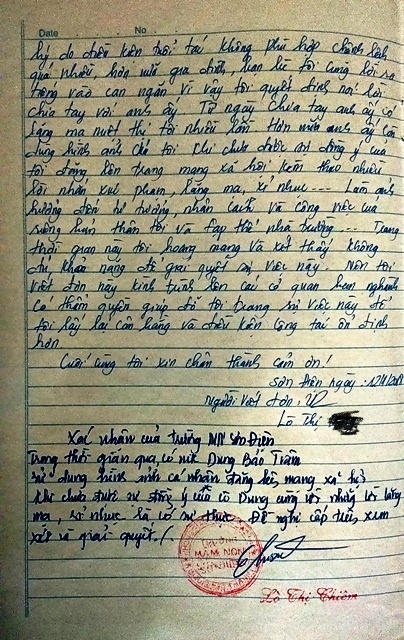 Date No
lý do điều kiện tuổi tác không phù hợp chênh lệch
quá nhiều, hơn nữa gia đình, bạn bè tôi cũng
vào can ngăn vì vậy tôi quyết định nói lời
chia tay với anh ấy. Từ ngày chia tay anh ấy có
lăng mạ tôi nhiều lần. Hơn nữa anh ấy còn
dùng hình ảnh của tôi khi chưa được sự đồng ý của
tôi đăng lên trang mạng xã hội kèm theo nhiều
lời nhắn xúc phạm, lăng mạ, sỉ nhục --- Làm ảnh
hưởng đến tư tưởng, nhân cách và công việc của
riêng bản thân tôi và tập thể nhà trường --- Trong
thời gian này tôi hoang mang và xét thấy không
đủ khả năng để giải quyết sự việc này. Nên tôi
viết đơn này kính trình lên các cơ quan ban nghành
có thẩm quyền giúp đỡ tôi trong sự việc này để
tôi lấy lại cân bằng và điều kiện công tác ổn định
hơn
Cuối cùng tôi xin chân thành cảm ơn!
Sơn Điền ngày
Người viết đơn
Lò Thị
Xác nhận của trường MN Sơn Điện
Trong thời gian qua, có nick Dung Bảo Trâm
sử dụng hình ảnh cá nhân đăng lên mạng xã hội
khi chưa được sự đồng ý của cô Dung cùng với những lời lăng
mạ, sỉ nhục là có sự thực. Đề nghị cấp trên xem
xét và giải quyết./.
TRƯỜNG
MẦM NON
SƠN ĐIỆN
Lò Thị Chiêm